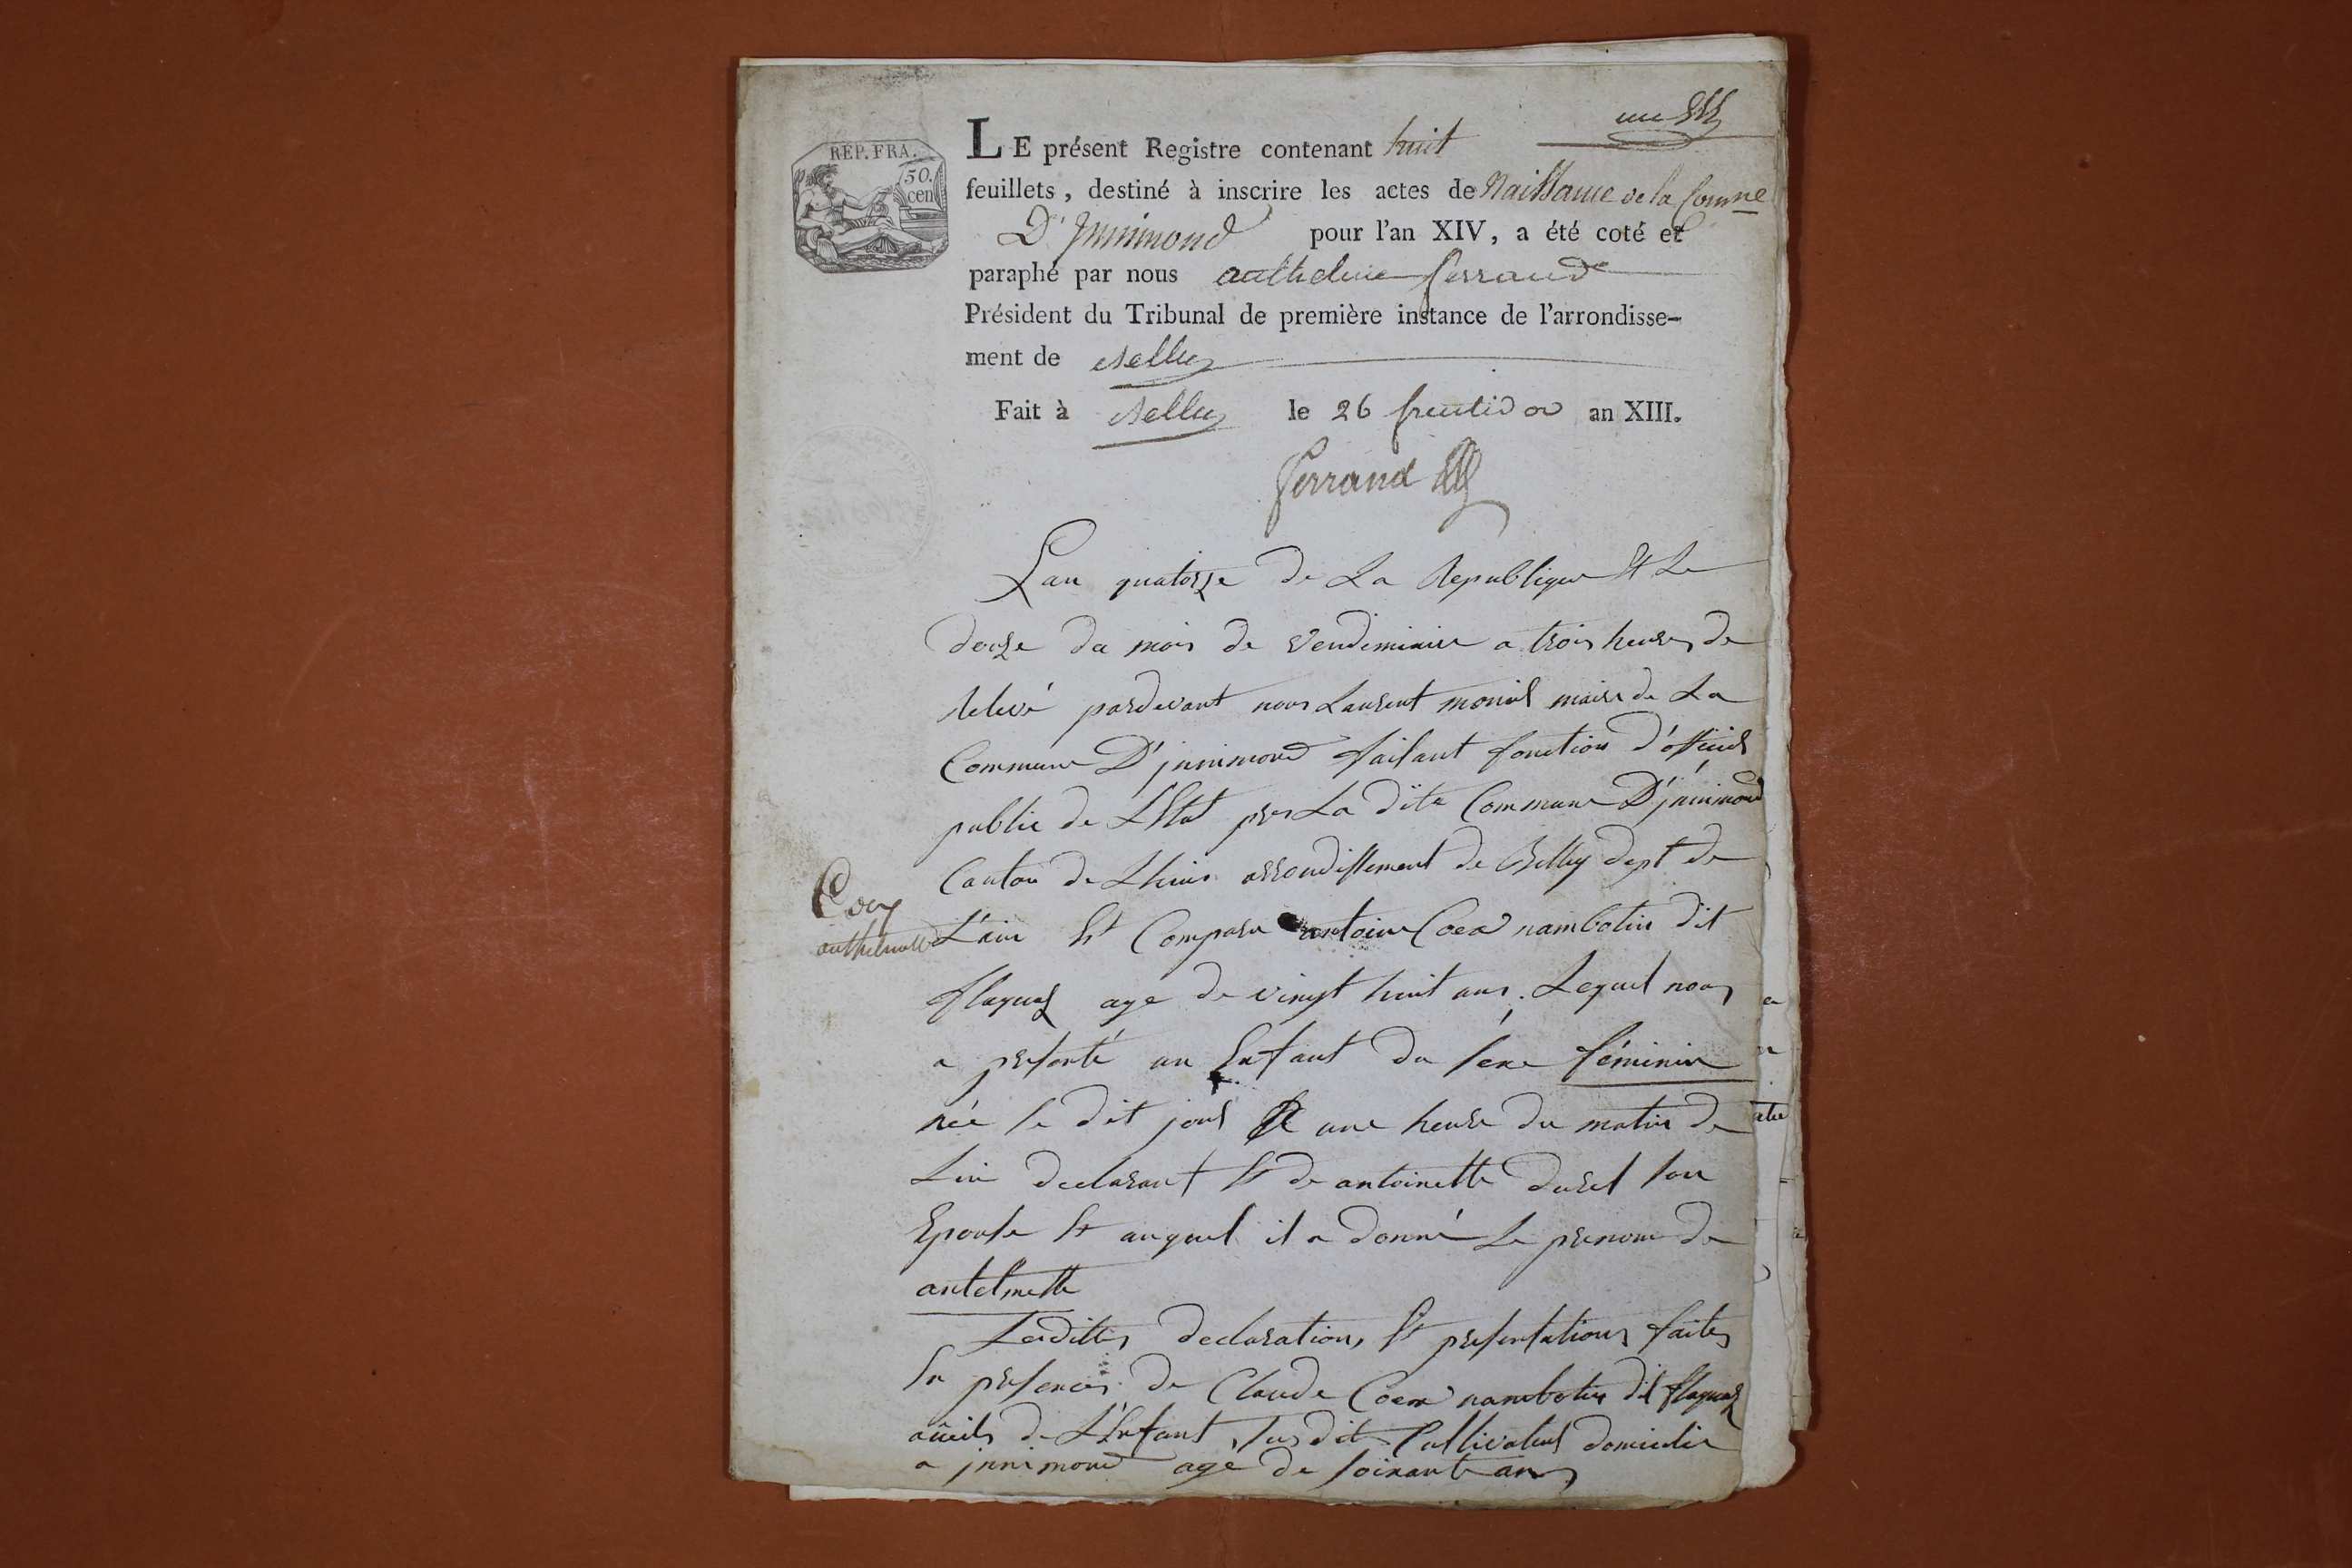 un
REP. FRA.
50.
cen
LE présent Registre contenant huit
feuillets, destiné à inscrire les actes de Naissance de la Comne
D'Innimond pour l'an XIV, a été coté et
paraphé par nous anthelme ferrand
Président du Tribunal de première instance de l'arrondisse-
ment de Belley
Fait à Belley le 26 fructidor an XIII.
ferrand
Lan quatorze de La Republique Et Le
douze du mois de vendimiaire a trois heures de
relevé pardevant nous Laurent monier maire de La
Commune D'jnnimond faisant fonction d'officier
public de L'Etat pour La dite Commune D'jnnimond
Canton de Lhuis arrondissement de Belley dept de
Coux
anthelmette
L'ain Et Comparu antoine Coux nambotin dit
flaquet age de vingt huit ans. Lequel nous
a presenté un Enfant du sexe féminin
née Le dit jour a une heure du matin de
Lui declarant Et de antoinette duret son
Epouse Et auquel il a donné Le prenom de
antelmette
Lesdittes declaration, Et presentations faites
En presences de Claude Coux nambotin dit flaquet
de L'Enfant, susdit Cultivateur domicilié
a jnnimond agé de soixante ans